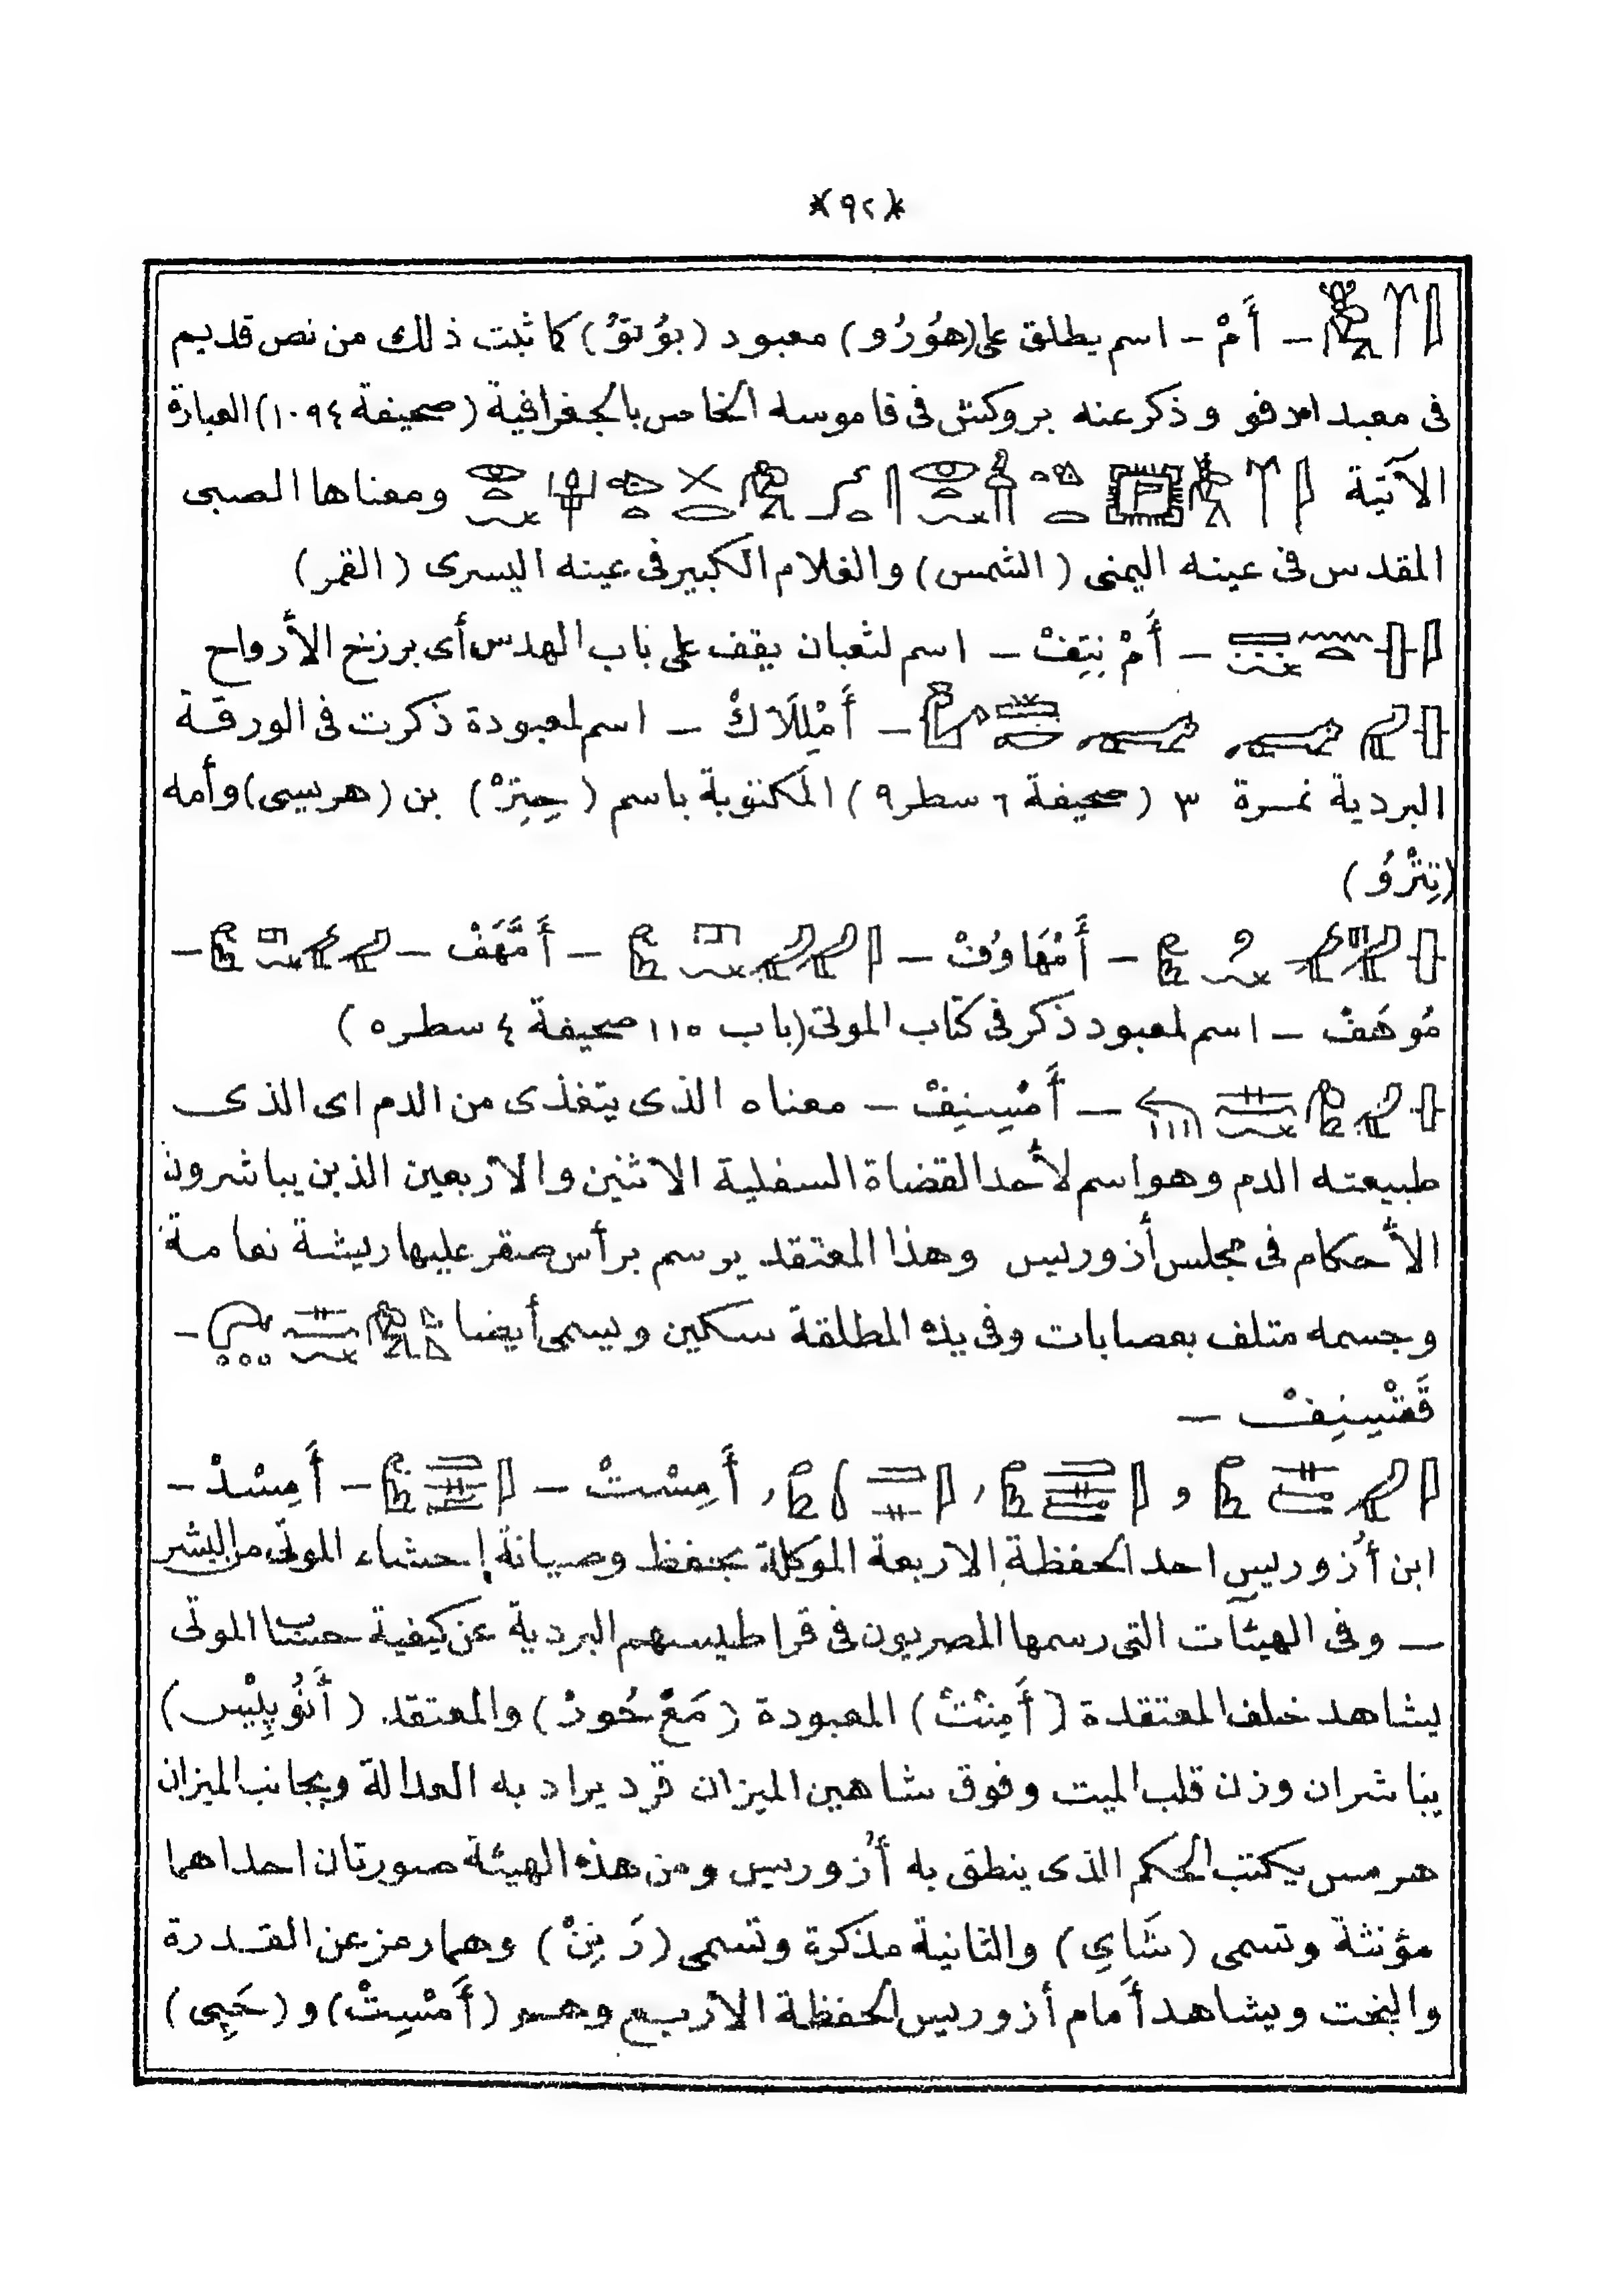 *٩٢*
— أَمْ — اسم يطلق على (هُوَرُو) معبود (بُوُتوُ) كما ثبت ذلك من نص قديم
فى معبد ادفو وذكر عنه بروكش فى قاموسه الخاص بالجغرافية (صحيفة ١٠٩٤) العبارة
الآتية ومعناها الصبى
المقدس فى عينه اليمنى (الشمس) والغلام الكبير فى عينه اليسرى (القمر)
— أَمْ نِتِفْ — اسم لثعبان يقف على باب الهدس أى برزخ الأرواح
— أَمْلِلَاكْ — اسم لمعبودة ذكرت فى الورقة
البردية نمرة ٣ (صحيفة ٦ سطر ٩) المكتوبة باسم (حِتِرْ) بن (هرسيسى) وأمه
(تِتْرُو)
— أَمْهَاوُفْ — — أَمَّهَفْ — —
مُوهَفْ — اسم لمعبود ذكر فى كتاب الموتى (باب ١١٥ صحيفة ٤ سطر ٥)
— أَمْسِنِفْ — معناه الذى يتغذى من الدم اى الذى
طبيعته الدم وهو اسم لأحد القضاة السفلية الاثنين والاربعين الذين يباشرون
الأحكام فى مجلس أزوريس وهذا المعتقد يرسم برأس صقر عليها ريشة نعامة
وجسمه متلف بعصابات وفى يده المطلقة سكين ويسمى أيضا —
قَشْسِنِفْ —
و ، ، أَمِسْتْ — — أَمِسْدْ —
ابن أُزوريس احد الحفظة الاربعة الموكلة بحفظ وصيانة إحشاء الموتى من البشر
— وفى الهيئات التى رسمها المصريون فى قراطيسهم البردية عن كيفية حساب الموتى
يشاهد خلف المعتقدة (أَمِنْتْ) المعبودة (مَعْ حُورْ) والمعتقد (أَنُوبِيْس)
يباشران وزن قلب الميت وفوق شاهين الميزان قرد يراد به العدالة وبجانب الميزان
هرمس يكتب الحكم الذى ينطق به أُزوريس ومن هذه الهيئة صورتان احداهما
مؤنثة وتسمى (شَاىِ) والثانية مذكرة وتسمى (رَنِنْ) وهما رمز عن القدرة
والبخت ويشاهد أمام أزوريس الحفظة الاربع وهم (أَمْسِتْ) و (حَپِى)